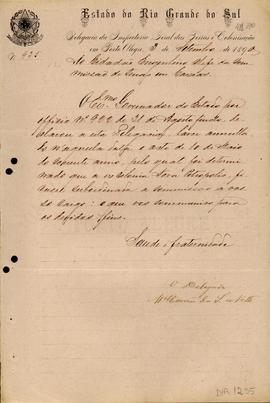 Estado do Rio Grande do Sul
Delegacia da Inspectoria Geral das Terras e Colonisação
em Porto Alegre, 3 de Setembro de 1890
Nº 435
Ao Cidadão Engenheiro Chefe da Com
missão de Terras em Caxias
O Exmo Governador do Estado por
officio Nº 922 de 31 de Agosto findo, de
clarou a esta Delegacia, haver annulla
do naquela data o acto de 10 de Maio
do corrente anno, pelo qual foi determi
nado que a ex Colonia Nova Petropolis, fi
casse subordinada a commissão a vos
so cargo: o que vos communico para
os devidos fins.
Saude e fraternidade
O Delegado
DIR 1255